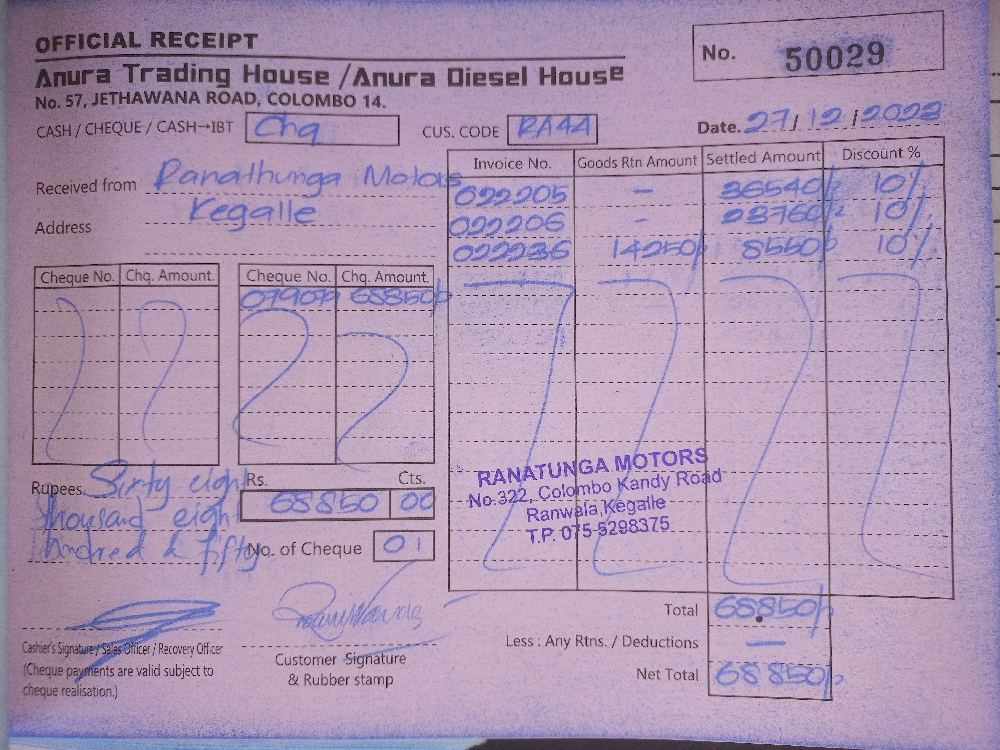 OFFICIAL RECEIPT
No. 50029
Anura Trading House / Anura Diesel House
No. 57, JETHAWANA ROAD, COLOMBO 14.
CASH / CHEQUE / CASH→IBT Chq CUS. CODE RA44 Date. 27/12/2022
Received from Ranathunga Motors
Address Kegalle
Invoice No. Goods Rtn Amount Settled Amount Discount %
022205 - 36540/- 10%
022206 - 23760/- 10%
022236 14250/- 8550/- 10%
Cheque No. Chq. Amount. Cheque No. Chq. Amount.
68850/-
Rupees. Sixty eight
thousand eight
hundred & fifty
Rs. Cts.
68850 00
No. of Cheque 01
RANATUNGA MOTORS
No.322, Colombo Kandy Road
Ranwala, Kegalle
T.P. 075-5298375
Total 68850/-
Less : Any Rtns. / Deductions —
Net Total 68850/-
Cashier's Signature / Sales Officer / Recovery Officer
(Cheque payments are valid subject to
cheque realisation.)
Customer Signature
& Rubber stamp